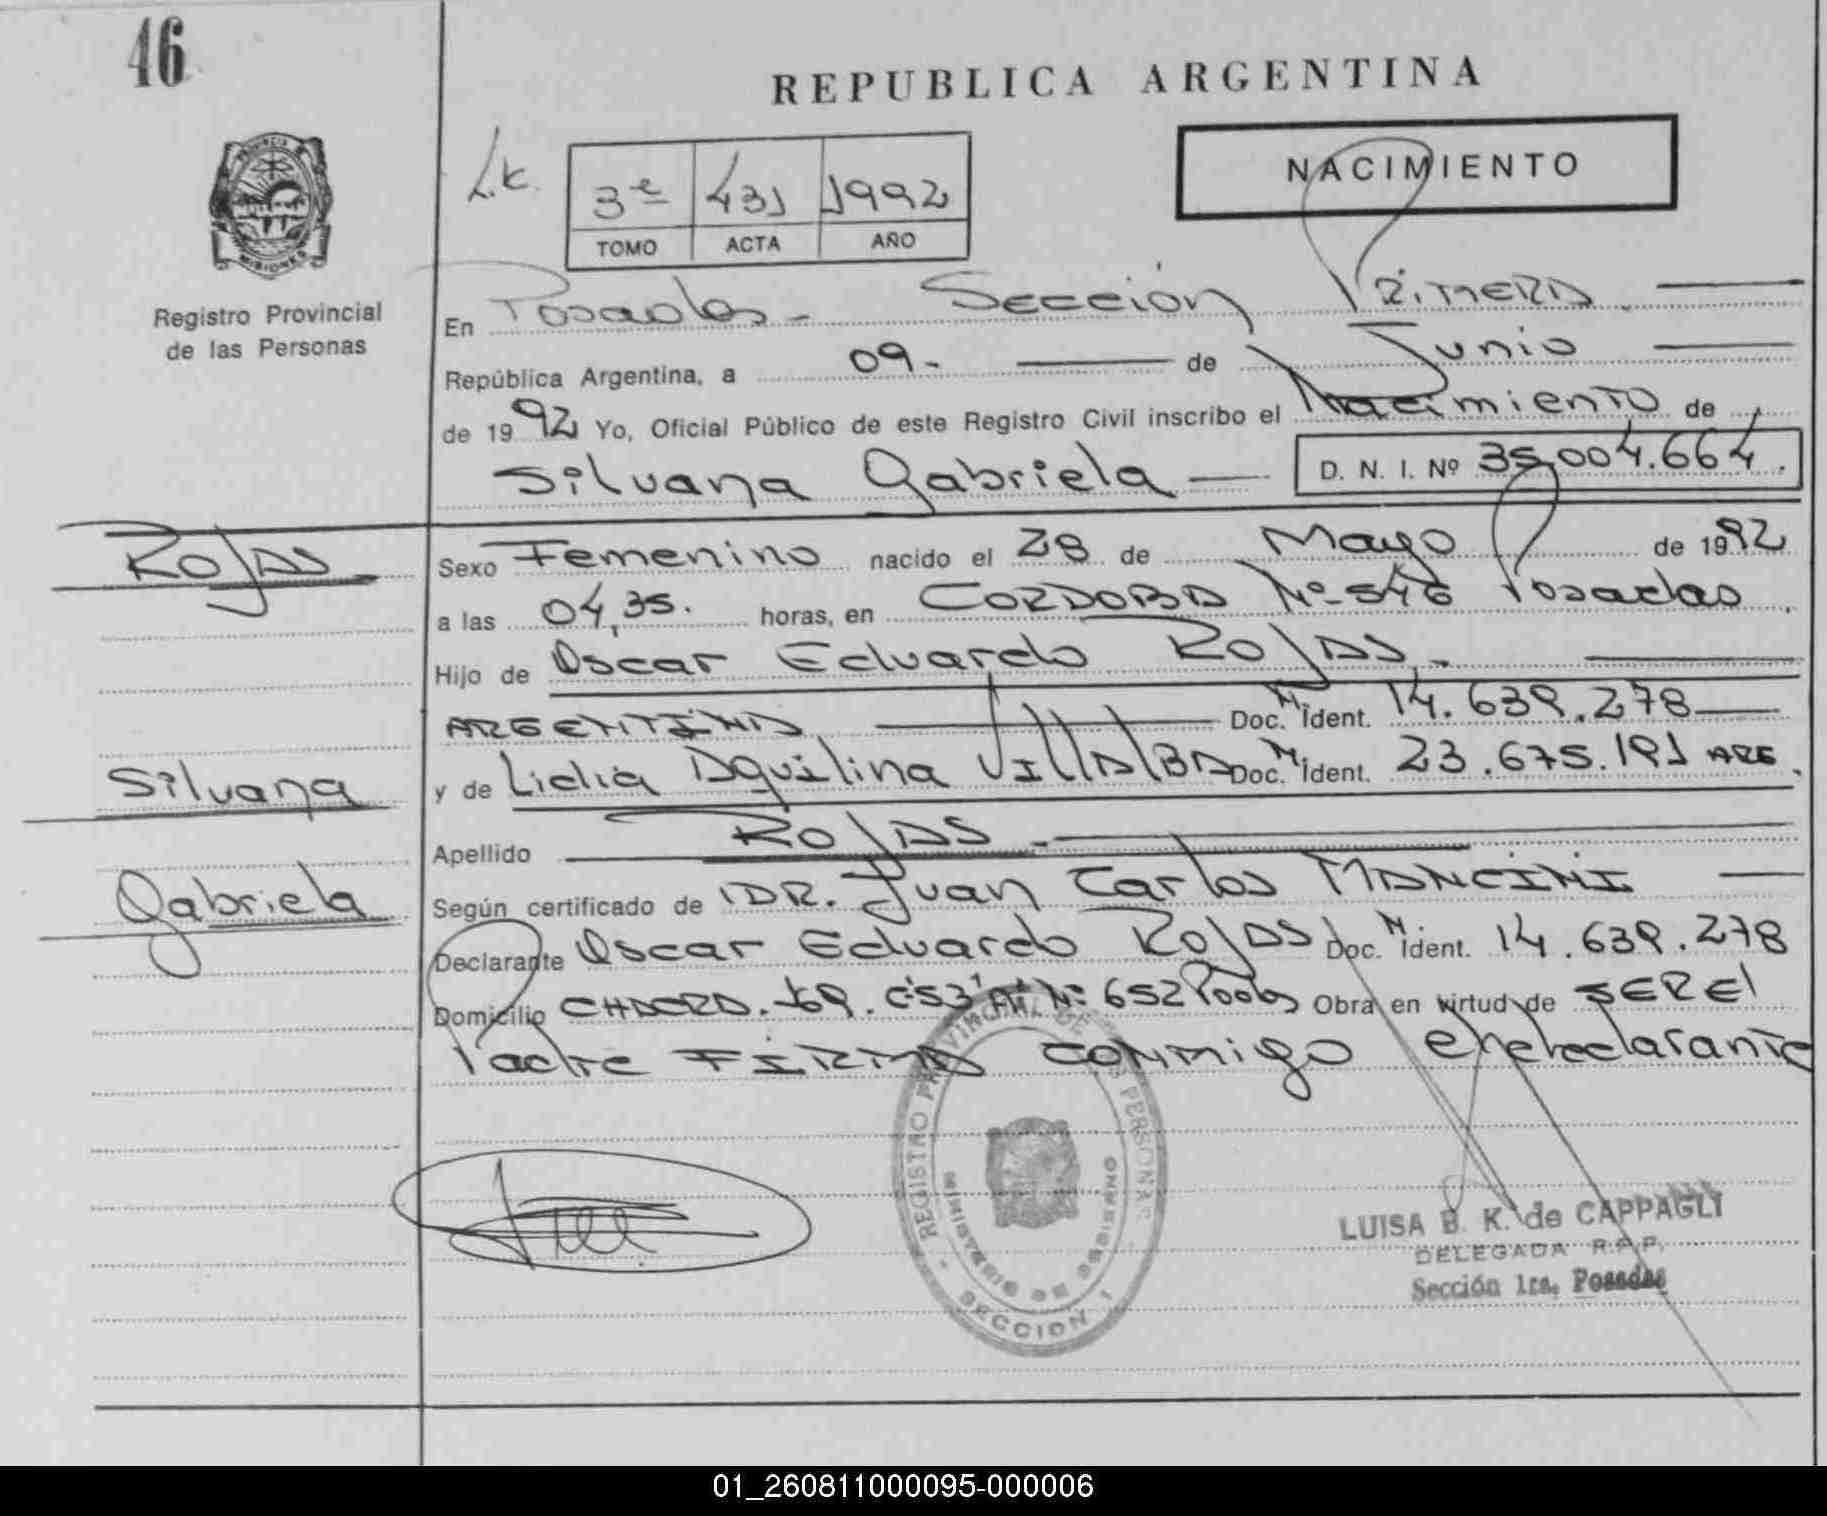 46
REPUBLICA ARGENTINA
NACIMIENTO
L.K.
3º 431 1992
TOMO ACTA AÑO
PROVINCIA DE
MISIONES
Registro Provincial
de las Personas
En Posadas - Sección Primera.
República Argentina, a 09- de Junio
de 1992 Yo, Oficial Público de este Registro Civil inscribo el Nacimiento de
Silvana Gabriela D. N. I. Nº 35.004.664.
Rojas
Sexo Femenino nacido el 28 de Mayo de 1992
a las 04,35. horas, en CORDOBA Nº 546 Posadas.
Hijo de Oscar Eduardo Rojas.
ARGENTINA Doc. M. Ident. 14.639.278
Silvana
y de Lidia Aquilina Villalba Doc. M. Ident. 23.675.191 ARG.
Apellido Rojas
Gabriela
Según certificado de DR. Juan Carlos MANCINI
Declarante Oscar Eduardo Rojas Doc. M. Ident. 14.639.278
Domicilio Nº 652 Obra en virtud de SER El
Padre FIRMA conmigo el declarante
REGISTRO PROVINCIAL DE LAS PERSONAS
MINISTERIO DE GOBIERNO
SECCION 1
LUISA B. K. de CAPPAGLI
DELEGADA R.P.P.
Sección 1ra. Posadas
01_260811000095-000006